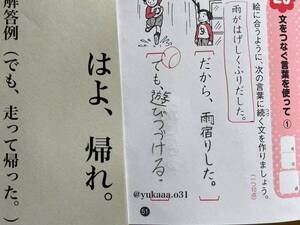 文をつなぐ言葉を使って①
絵に合うように、次の言葉に続く文を作りましょう。
(二つ分)
雨がはげしくふりだした。
だから、雨宿りした。
でも、遊びつづける。
@yukaaa.o31
51
はよ、帰れ。
解答例(でも、走って帰った。)